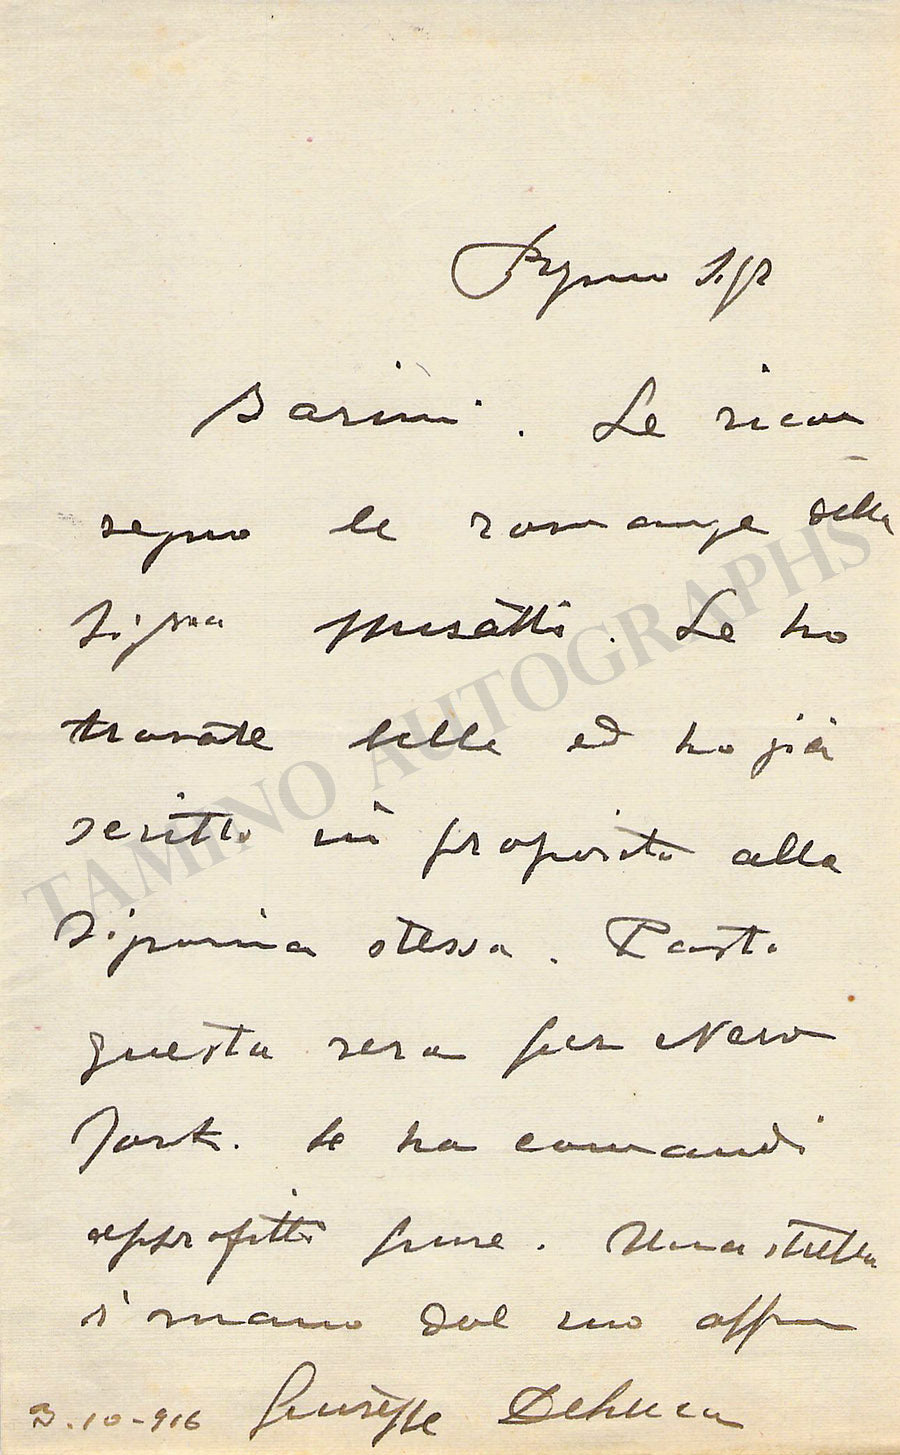 Pregmo Sigr
Barini. Le ricon
segno le romanze della
Sigrna Musatti. Le ho
trovate belle ed ho già
scritto in proposito alla
Signorina stessa. Parto
questa sera per New
York. Se ha comandi
approfitti pure. Una stretta
di mano dal suo affmo
Giuseppe DeLuca
3.10-916
TAMINO AUTOGRAPHS